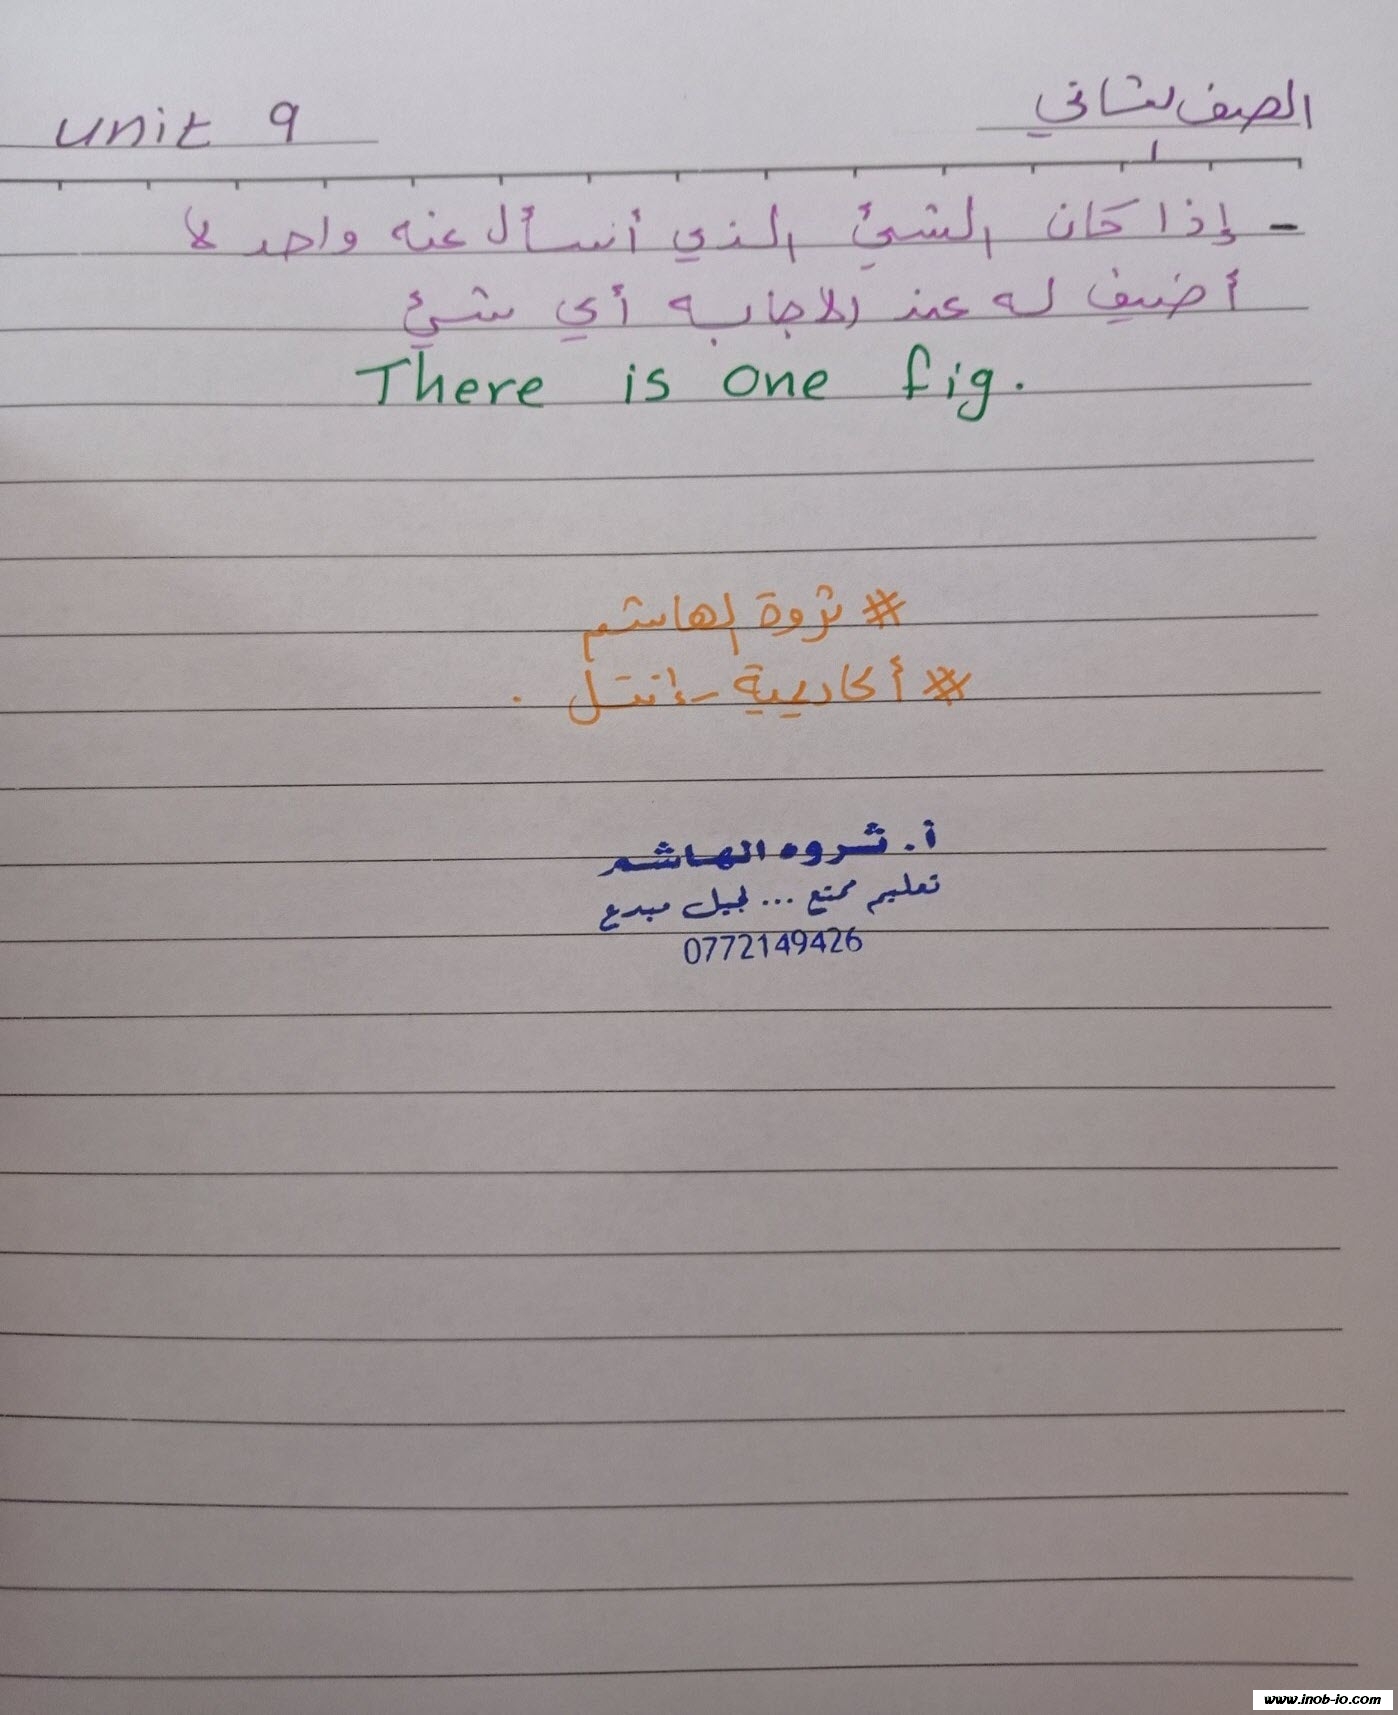 الصف الثاني
unit 9
- إذا كان الشيئ الذي أسأل عنه واحد لا
أضيف له عند الاجابه أي شيئ
There is one fig.
# ثروة الهاشم
# أكاديمية - إنتل .
أ. ثروه الهاشم
تعليم ممتع ... لجيل مبدع
0772149426
www.inob-io.com